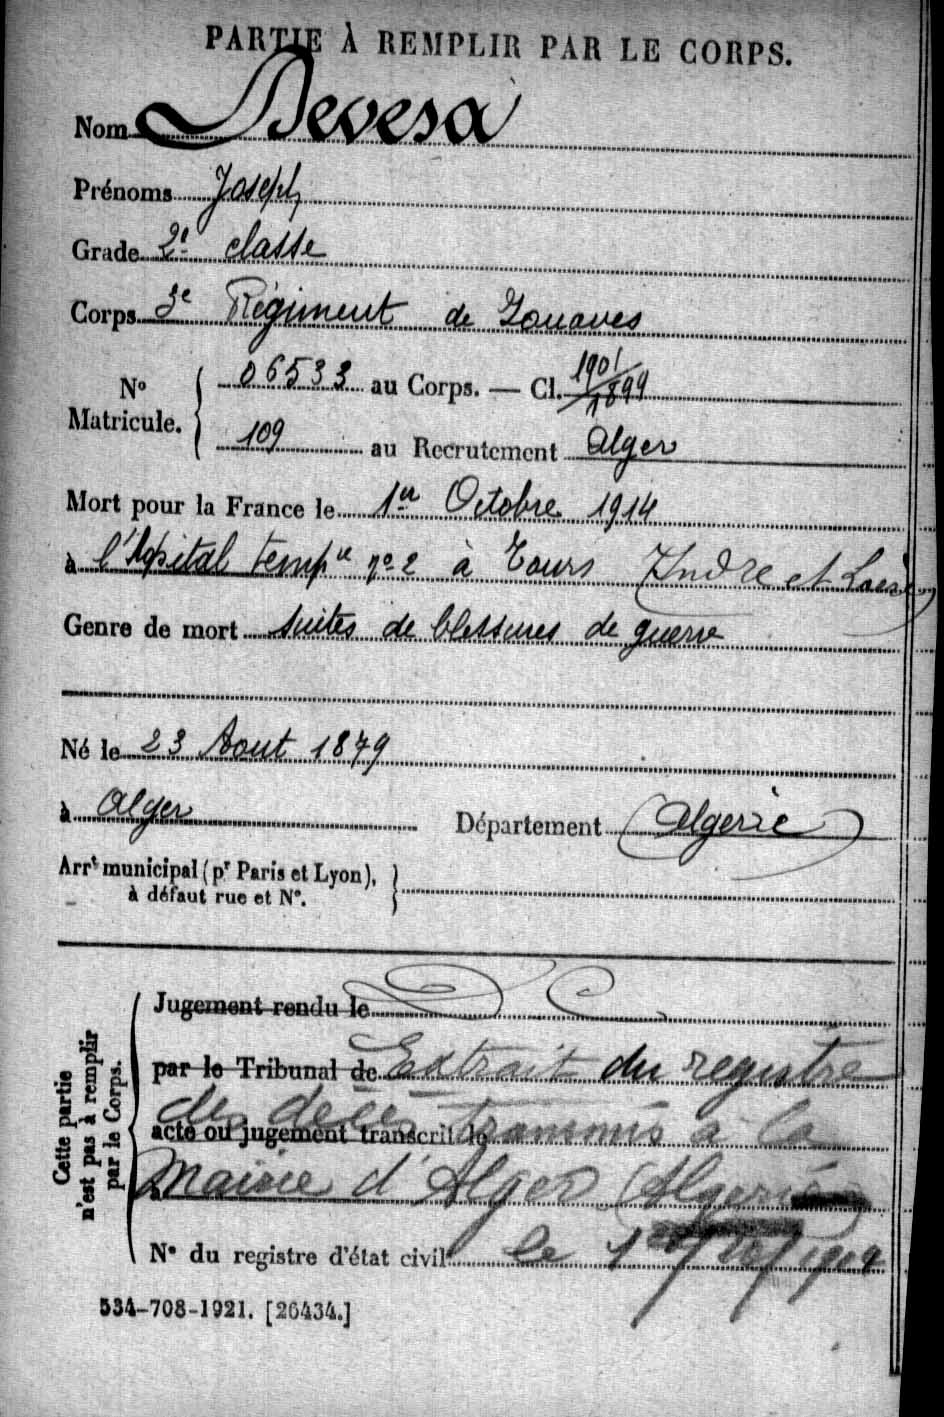 PARTIE À REMPLIR PAR LE CORPS.
Nom Devesa
Prénoms Joseph
Grade 2e classe
Corps 3e Régiment de Zouaves
No Matricule. { 06533 au Corps. — Cl. 1901/1899
109 au Recrutement Alger
Mort pour la France le 1er Octobre 1914
à l'hôpital tempre no 2 à Tours (Indre et Loire)
Genre de mort suites de blessures de guerre
Né le 23 Aout 1879
à Alger Département (Algérie)
Arrt municipal (pr Paris et Lyon),
à défaut rue et No.
Cette partie n'est pas à remplir par le Corps.
Jugement rendu le
par le Tribunal de Extrait du registre
acte ou jugement transcrit le de décès transmis à la
Mairie d'Alger (Algérie)
No du registre d'état civil le 1914
534-708-1921. [26434.]